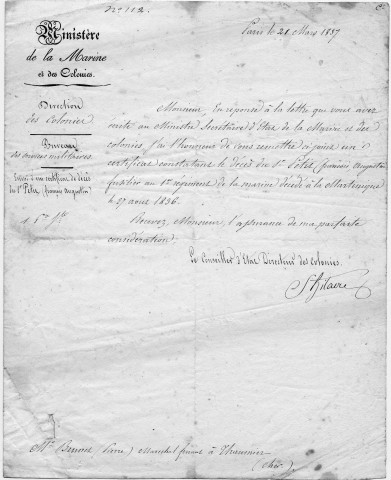 N° 112.
Ministère
de la Marine
et des Colonies.
Paris le 21 Mars 1837
Direction
des Colonies
Bureau
des services militaires
Envoi d'un certificat de décès
du Sr. Péter (françois Augustin)
1 Pce Jte
Monsieur, En réponse à la lettre que vous avez
écrite au Ministre Secrétaire d'Etat de la Marine et des
colonies, j'ai l'honneur de vous remettre ci-joint un
certificat constatant le décès du Sr. Péter (françois Augustin)
fusilier au 1er régiment de la marine décédé à la Martinique
le 27 aout 1836.
Recevez, Monsieur, l'assurance de ma parfaite
considération.
Le Conseiller d'Etat Directeur des colonies.
St Hilaire
Mr. Benoit (Pierre) Maréchal ferrant à Thaumier
(Cher)